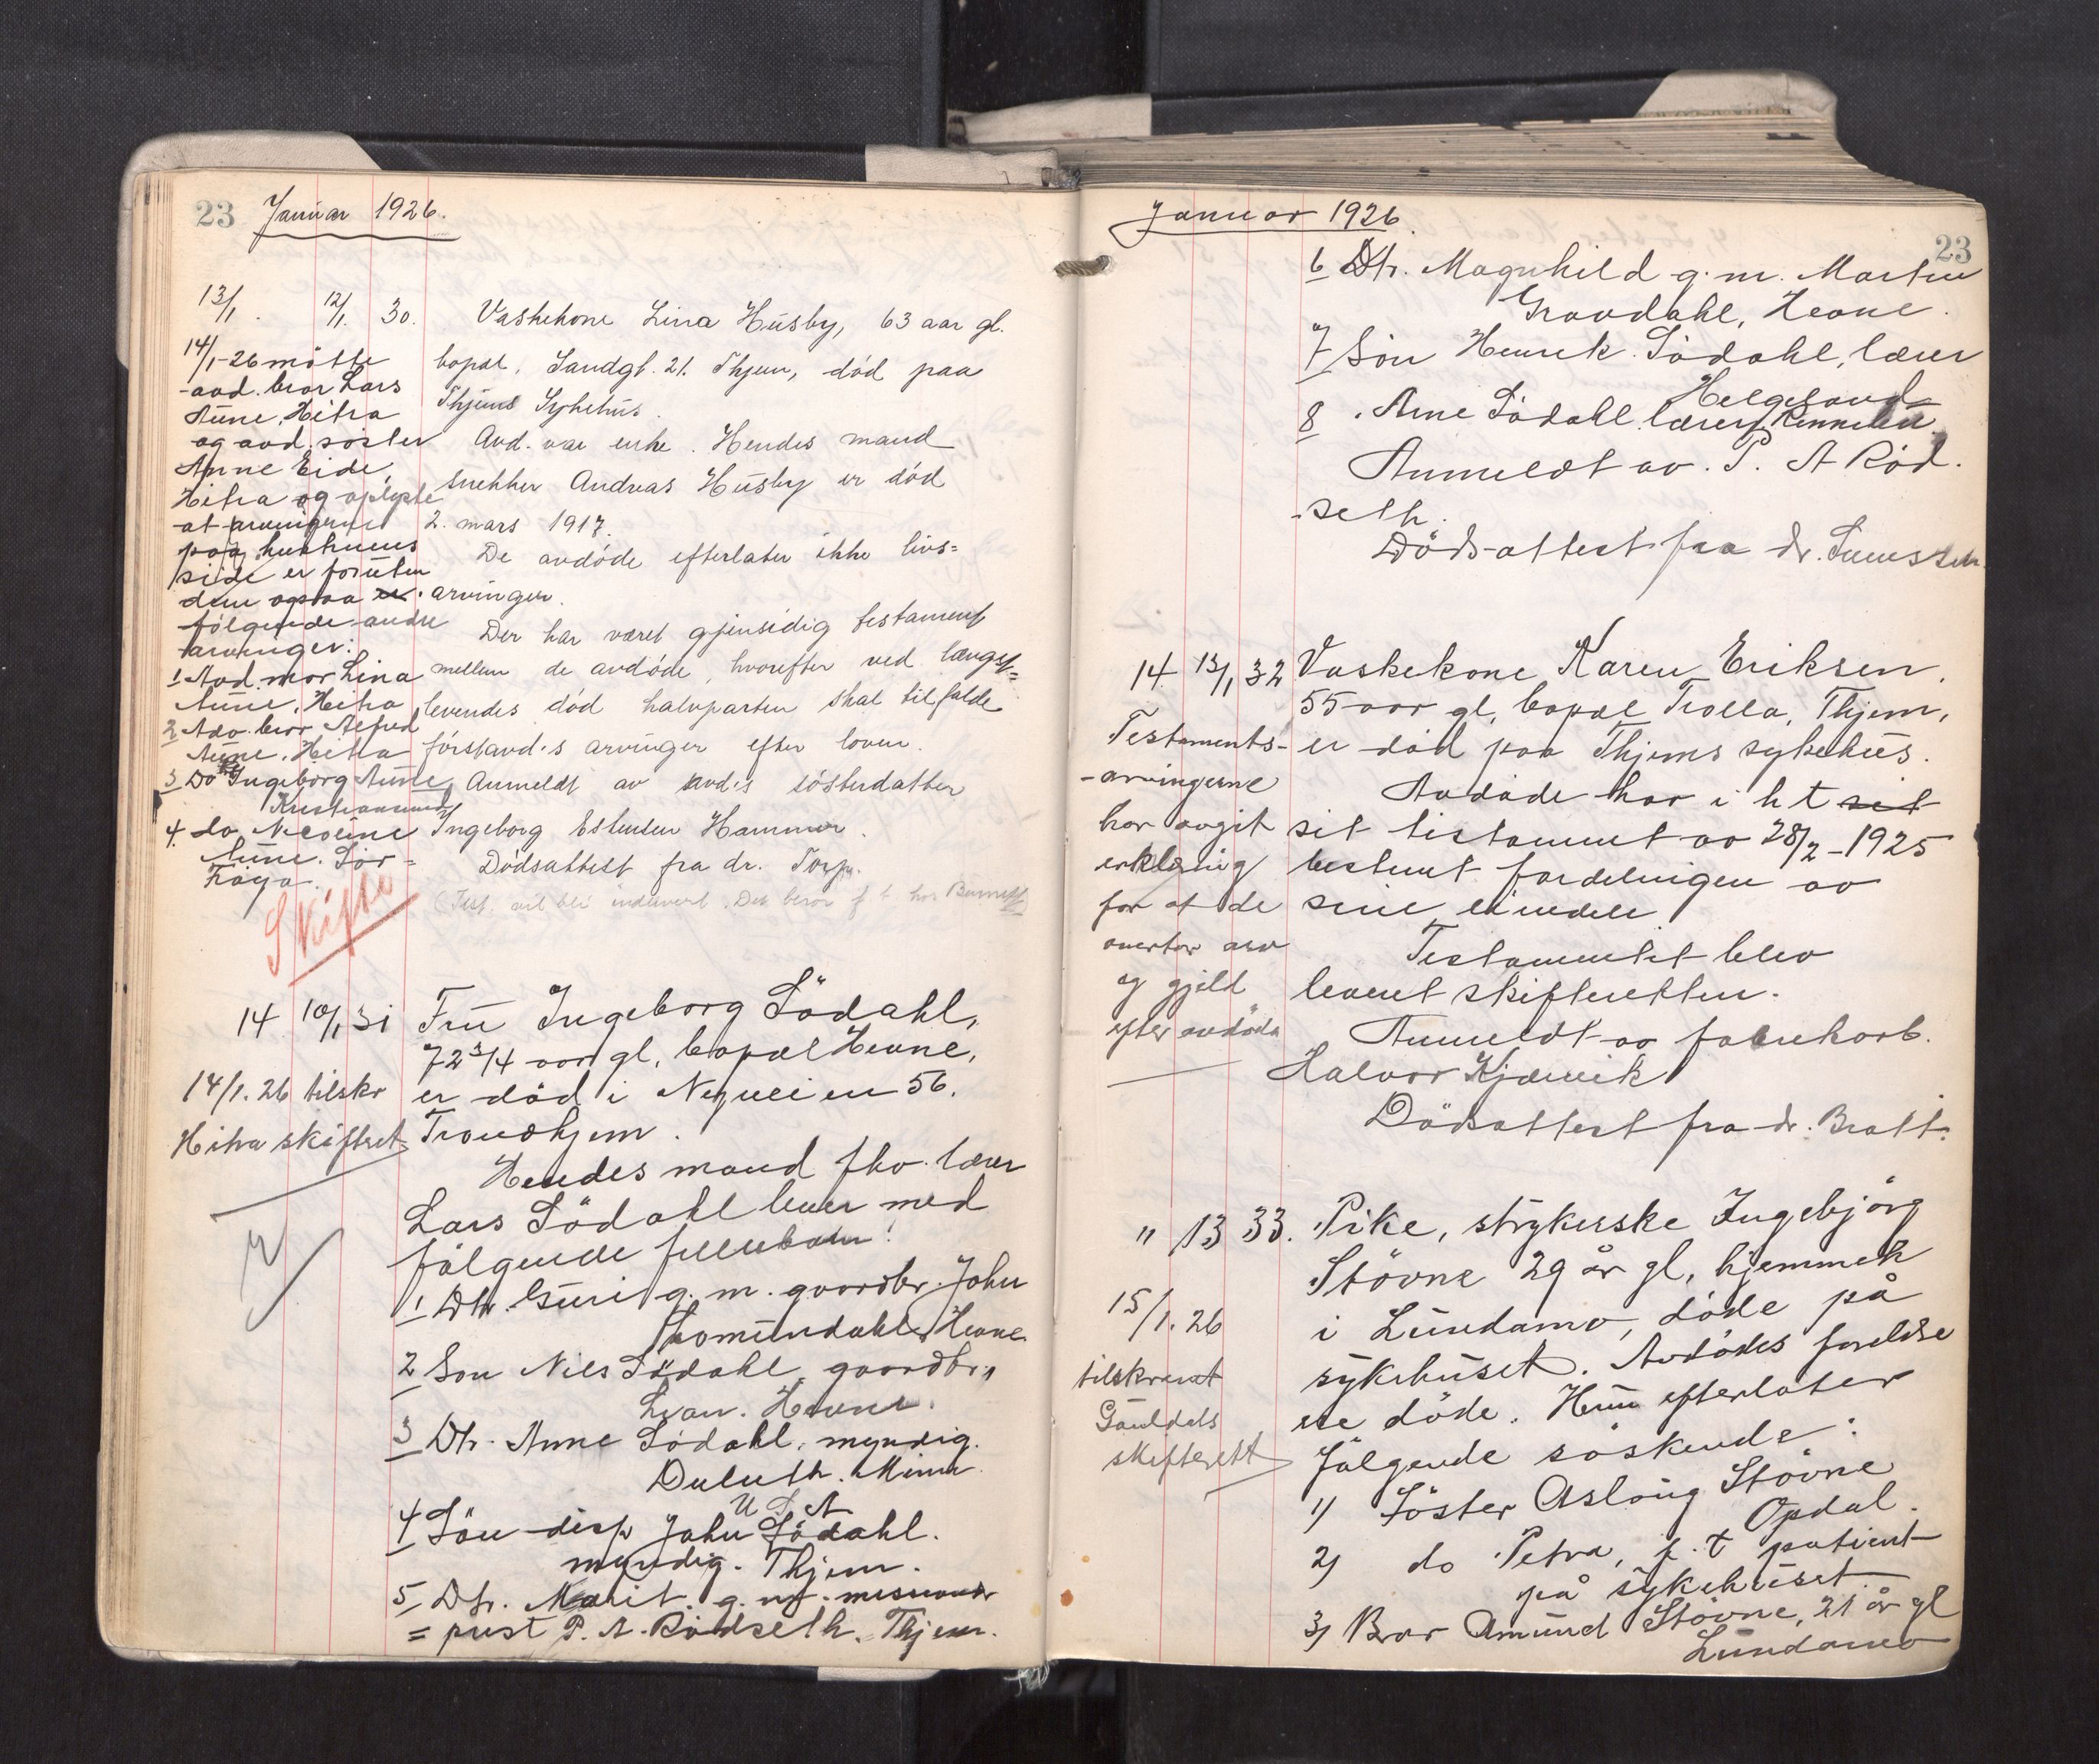 23 Januar 1926.
13/1. 12/1. 30. Vaskekone Lina Husby, 63 aar gl.
bopæl. Sandgt. 21. Thjem, död paa
Thjems Sykehus.
Avd. var enke. Hendes mand
snekker Andreas Husby er död
2. mars 1917.
De avdöde efterlater ikke livs=
arvinger.
Der har været gjensidig testament
mellem de avdöde, hvorefter ved længst=
levendes död halvparten skal tilfalde
förstavd.s arvinger efter loven.
Anmeldt av avd.s sösterdatter
Ingeborg Hammer.
Dödsattest fra dr. Torp.
(Test. vil bli indlevert. Det beror f. t. hos
14/1-26 mötte
avd. bror Lars
Aune, Hitra
og avd. söster
Anne Eide,
Hitra og oplyste
at arvingerne
paa hustruens
side er foruten
dem ogsaa
fölgende andre
arvinger:
1 Avd. mor Lina
Aune, Hitra
2 Avd. bror Alfred
Aune. Hitra
3 Do Ingeborg Aune,
Kristiansund
4. do Nicoline
Aune. Sör-
Fröya.
Skifte
14 10/1 31 Fru Ingeborg Södahl,
72 3/4 aar gl, bopæl Hevne,
er död i Nyveien 56.
Trondhjem.
Hendes mand fhv. lærer
Lars Södahl lever med
fölgende fellesbarn:
1 Dtr. Guri g. m. gaardbr. John
Lomundahl Hevne.
2 Sön Nils Södahl, gaardbr.,
Hevne.
3 Dtr. Anne Södahl, myndig.
Duluth. Minn.
U S A
4 Sön disp John Södahl.
myndig. Thjem.
5 Dtr. Marit. g. m. missions
= prest P. A. Rödseth. Thjem.
14/1. 26 tilskr
Hitra skifteret
Januar 1926.
23
6 Dtr. Magnhild g. m. Martin
Gravdahl, Hevne.
7 Sön Henrik Södahl, lærer
Helgeland
8 Arne Södahl lærer,
Anmeldt av. P. A Röd.
seth.
Dödsattest fra dr.
14. 13/1 32 Vaskekone Karen Eriksen,
55 aar gl, bopæl Trolla, Thjem,
er död paa Thjems sykehus.
Avdöde har i h t sit
sit testament av 28/2-1925
bestemt fordelingen av
sine eiendele
Testamentet blev
levert skifteretten.
Anmeldt av fabrikarb.
Halvor Kjærvik
Dödsattest fra dr. Bratt.
Testaments-
arvingerne
har avgit
erklæring
for at de
overtar arv
og gjeld
efter avdöde
" 13 33. Pike, strykerske Ingebjörg
Stövne 29 år gl, hjemmeh
i Lundamo, döde på
sykehuset. Avdödes foreldre
er döde. Hun efterlater
fölgende söskende:
1) Söster Aslaug Stövne
Opdal.
2) do Petra, f. t patient
på sykehuset.
3) Bror Amund Stövne, 21 år gl
Lundamo
15/1. 26
tilskrevet
Gauldals
skifterett